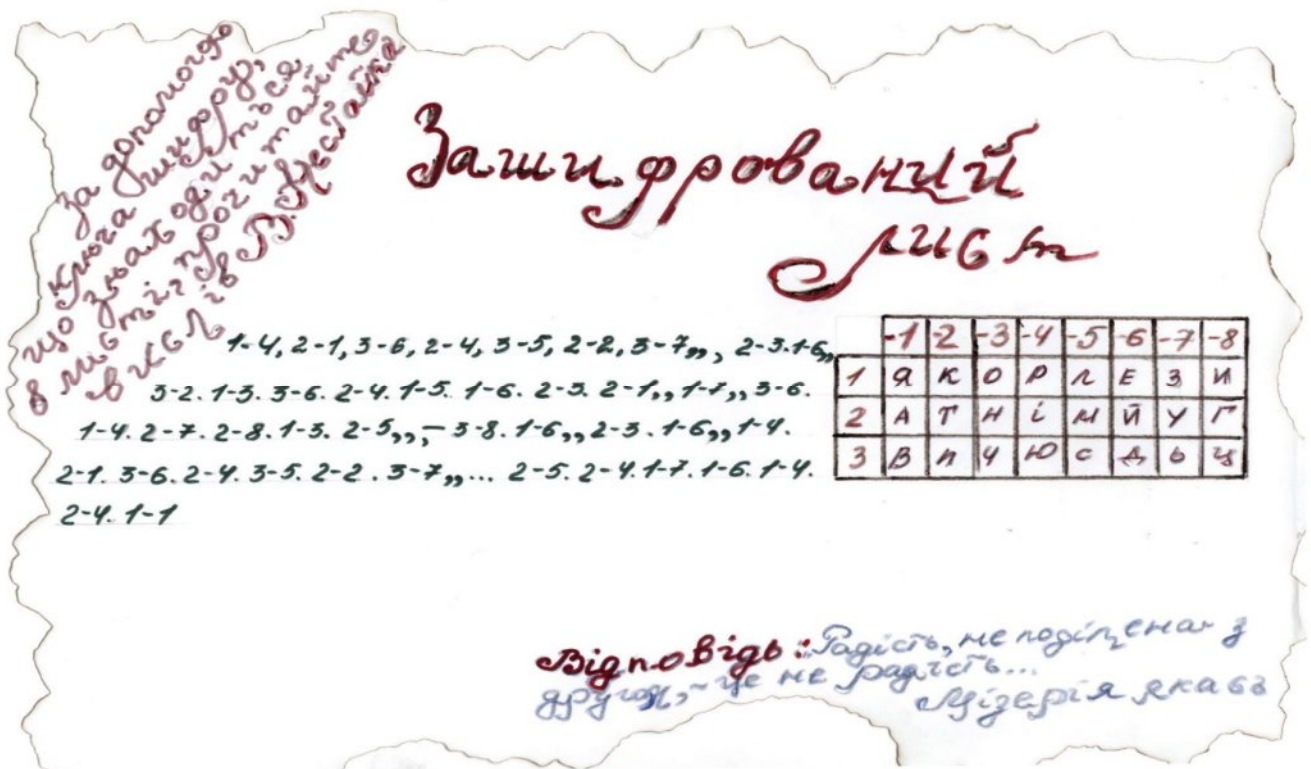 За допомогою
ключа шифру,
що знаходиться
в листі, прочитайте
вислів В. Арестайка
Зашифрований
лист
1-4, 2-1, 3-6, 2-4, 3-5, 2-2, 3-7,,, 2-3.1-6,,
3-2. 1-3. 3-6. 2-4. 1-5. 1-6. 2-3. 2-1,, 1-7,, 3-6.
1-4. 2-7. 2-8. 1-3. 2-5,,,- 3-8. 1-6,, 2-3. 1-6,, 1-4.
2-1. 3-6. 2-4. 3-5. 2-2. 3-7,,... 2-5. 2-4. 1-7. 1-6. 1-4.
2-4. 1-1
-1 -2 -3 -4 -5 -6 -7 -8
1 Я К О Р Л Е З И
2 А Т Н І М Й У Г
3 В П Ч Ю С Д Ь Ц
Відповідь: Радість, не поділена з
другом, - це не радість...
Мізерія якась